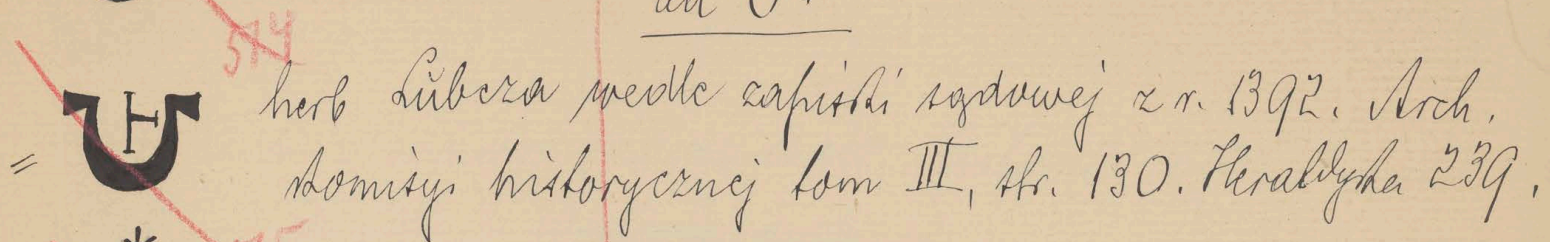 574
herb Lubcza wedle zapiski sądowej z r. 1392. Arch.
= komisyi historycznej tom III, str. 130. Heraldyka 239.